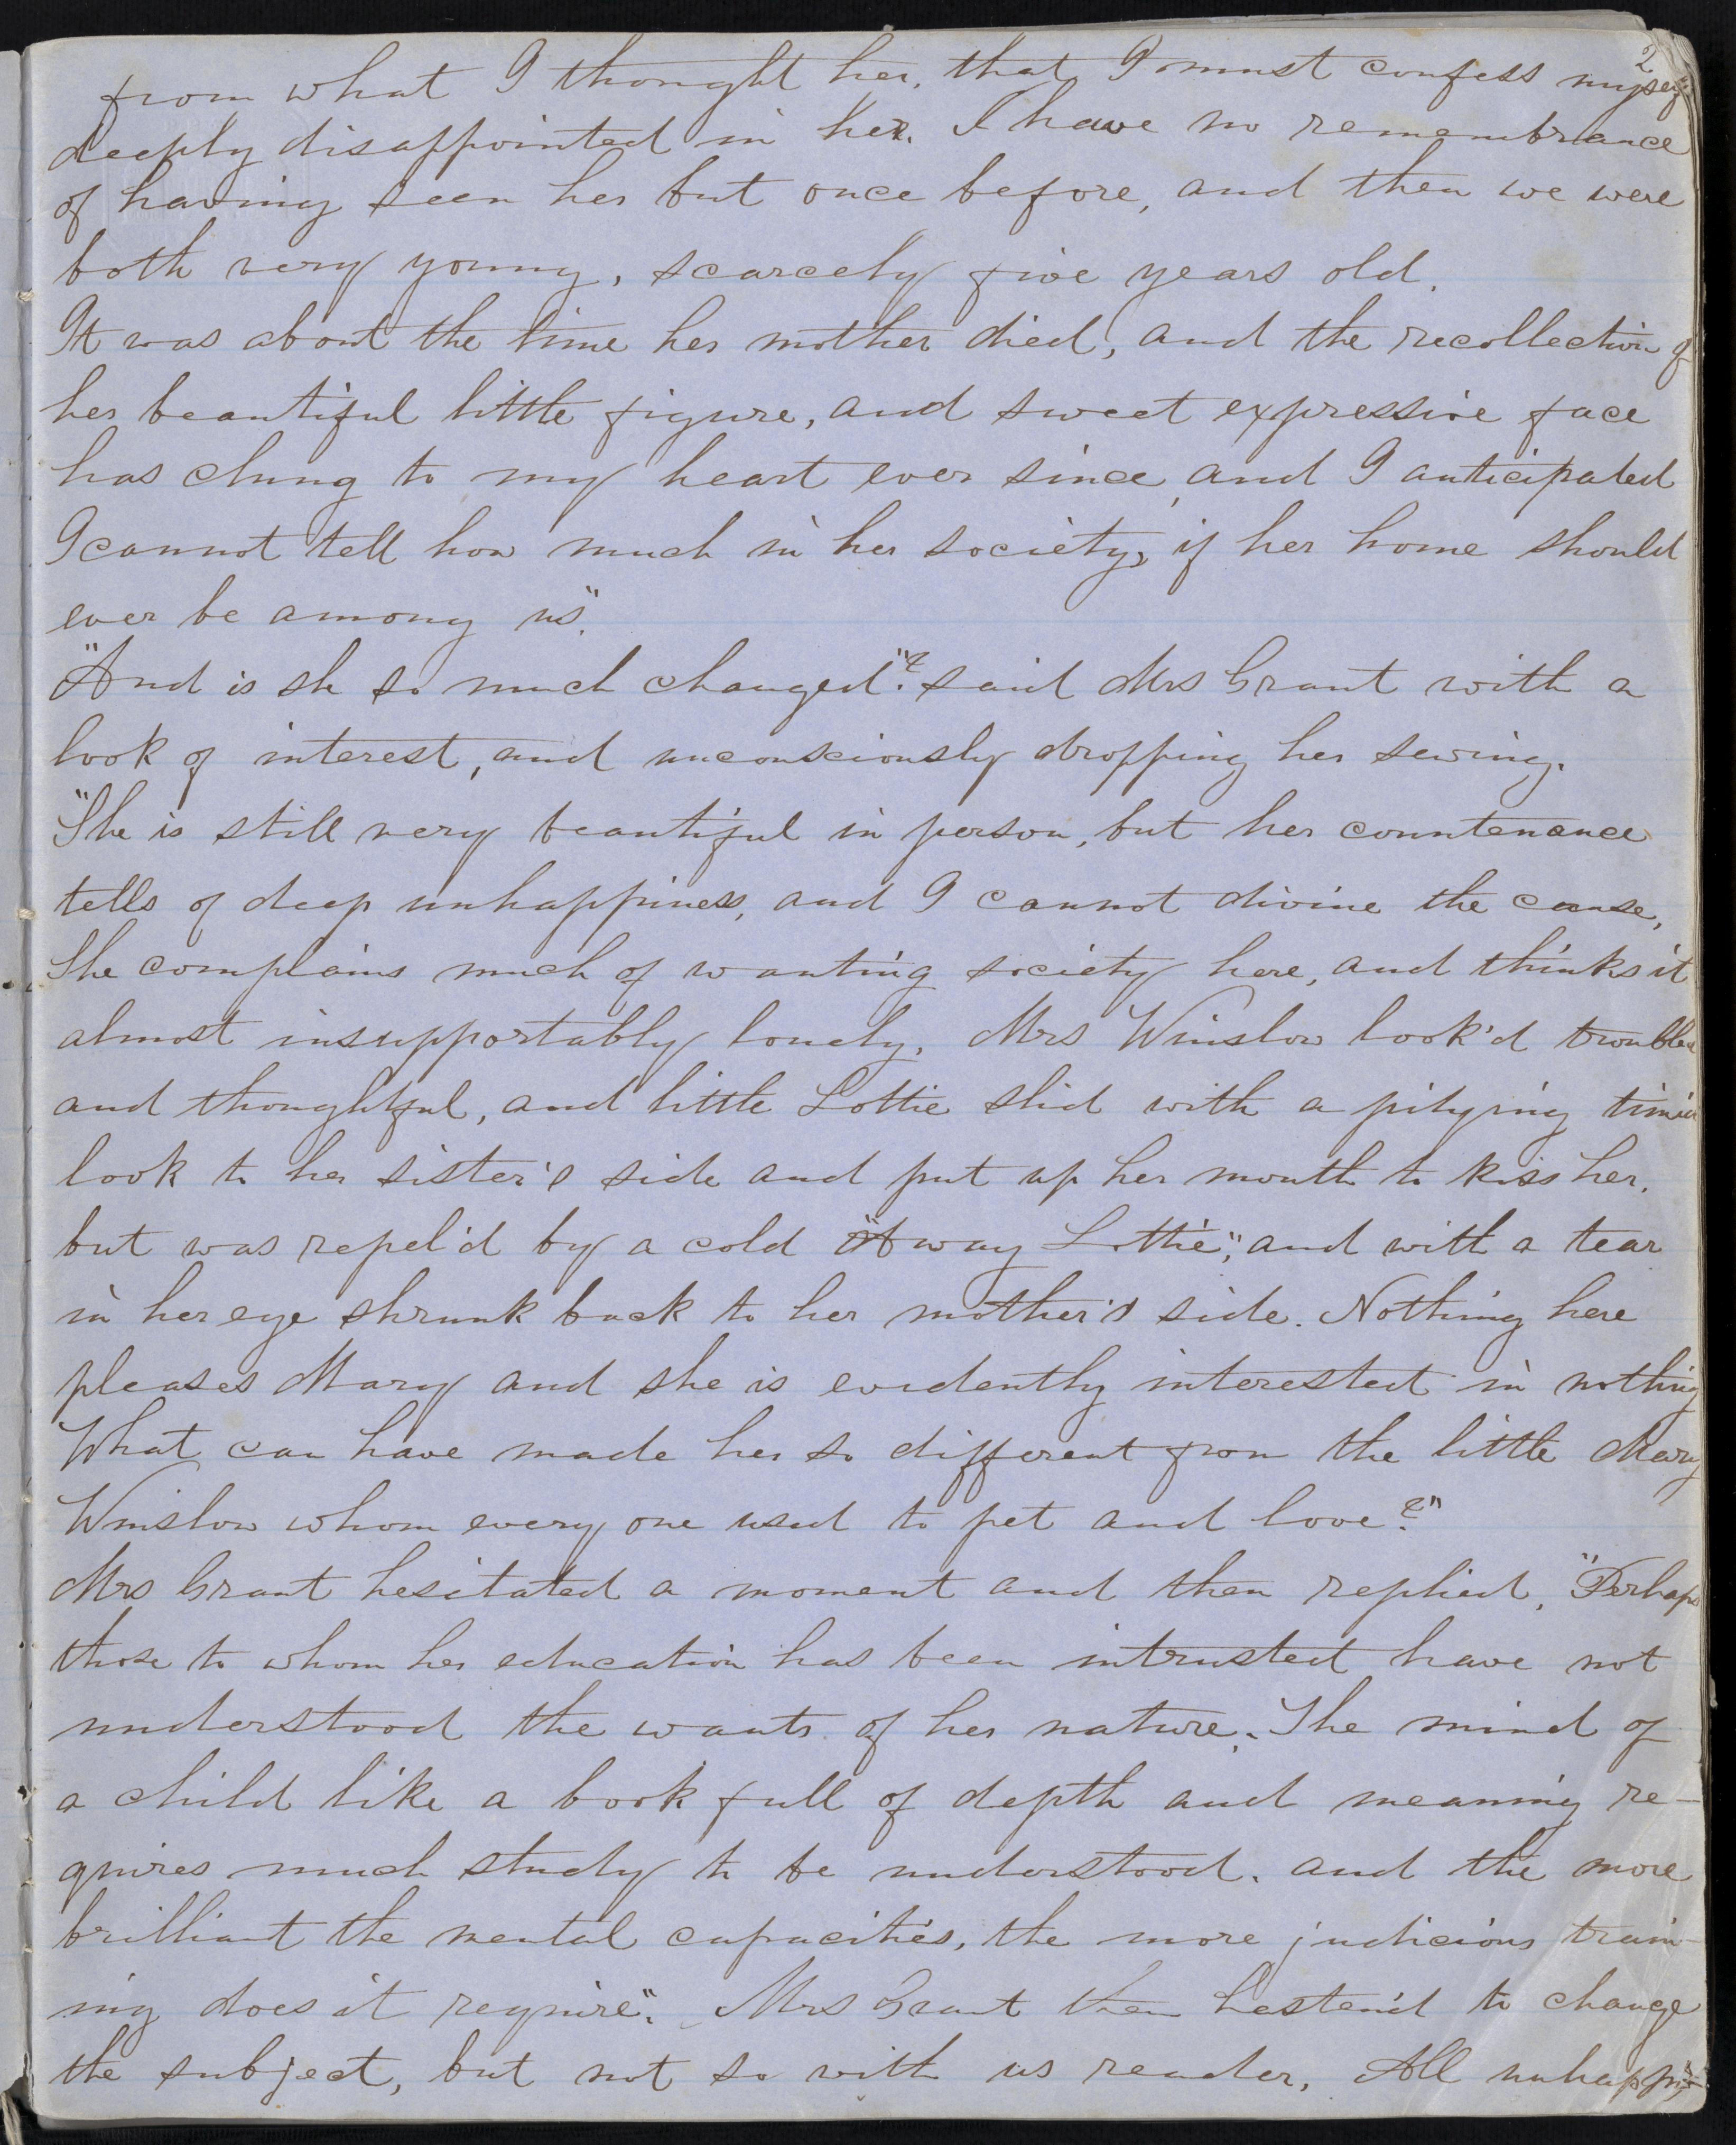 2
from what I thought her, that I must confess myself
deeply disappointed in her. I have no remembrance
of having seen her but once before, and then we were
both very young, scarcely five years old.
It was about the time her mother died, and the recollection of
her beautiful little figure, and sweet expressive face
has clung to my heart ever since, and I anticipated
I cannot tell how much in her society, if her home should
ever be among us".
"And is she so much changed"? said Mrs Grant with a
look of interest, and unconsciously dropping her sewing.
"She is still very beautiful in person, but her countenance
tells of deep unhappiness, and I cannot divine the cause,
She complains much of wanting society here, and thinks it
almost insupportably lonely. Mrs Winslow look'd troubled
and thoughtful, and little Lottie slid with a pitying timid
look to her sister's side and put up her mouth to kiss her,
but was repel'd by a cold "Away Lottie", and with a tear
in her eye shrunk back to her mother's side. Nothing here
pleases Mary and she is evidently interested in nothing
What can have made her so different from the little Mary
Winslow whom every one used to pet and love?"
Mrs Grant hesitated a moment and then replied, "Perhaps
those to whom her education has been intrusted have not
understood the wants of her nature. The mind of
a child like a book full of depth and meaning re-
quires much study to be understood. and the more
brilliant the mental capacities, the more judicious train-
ing does it require". Mrs Grant then hasten'd to change
the subject, but not so with us reader, All unhappi-